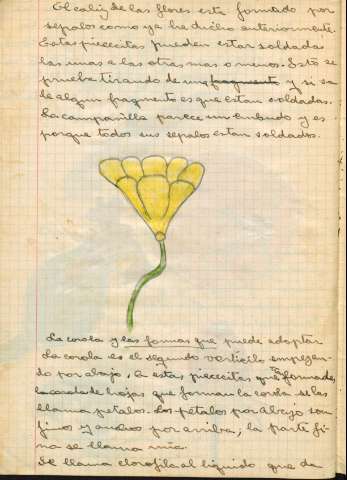 El caliz de las flores esta formado por
sepalos como ya he dicho anteriormente.
Estas piececitas pueden estar soldadas
las unas a las otras mas o menos. Esto se
prueba tirando de un fragmento y si sa
le algun fragmento es que estan soldadas.
La campanilla parece un embudo y es
porque todos sus sepalos estan soldados.
La corola y las formas que puede adoptar
La corola es el segundo verticilo empezan
do por abajo, a estas piececitas que formada
la corola de hojas que forman la corola se les
llama petalos. Los petalos por abajo son
finos y anchos por arriba; la parte fi
na se llama uña.
Se llama clorofila al liquido que da